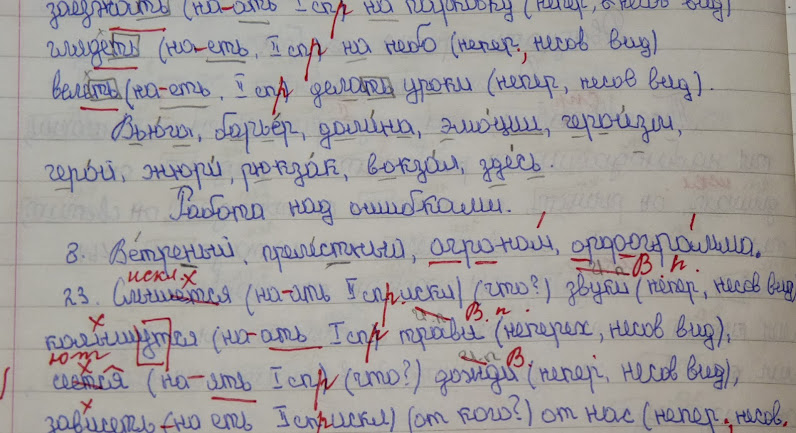 заезжать (на-ать I спр на парковку (непер, несов вид)
глядеть (на-еть, II спр на небо (непер, несов вид)
велеть (на-еть, II спр делать уроки (непер, несов вид).
Вьюга, барьер, долина, эмоции, героизм,
герой, жюри, рюкзак, вокзал, здесь.
Работа над ошибками.
8. Ветреный, прелестный, агроном, орфограмма.
искл. х и.п В. п.
23. (на-ать II спр искл) (что?) звуки (непер, несов вид)
х и.п В. п.
(на-ать I спр травы (неперех, несов вид),
ют и.п В.
(на-ять I спр (что?) дожди (непер, несов вид),
х
зависеть (на еть II спр искл) (от кого?) от нас (непер, несов.